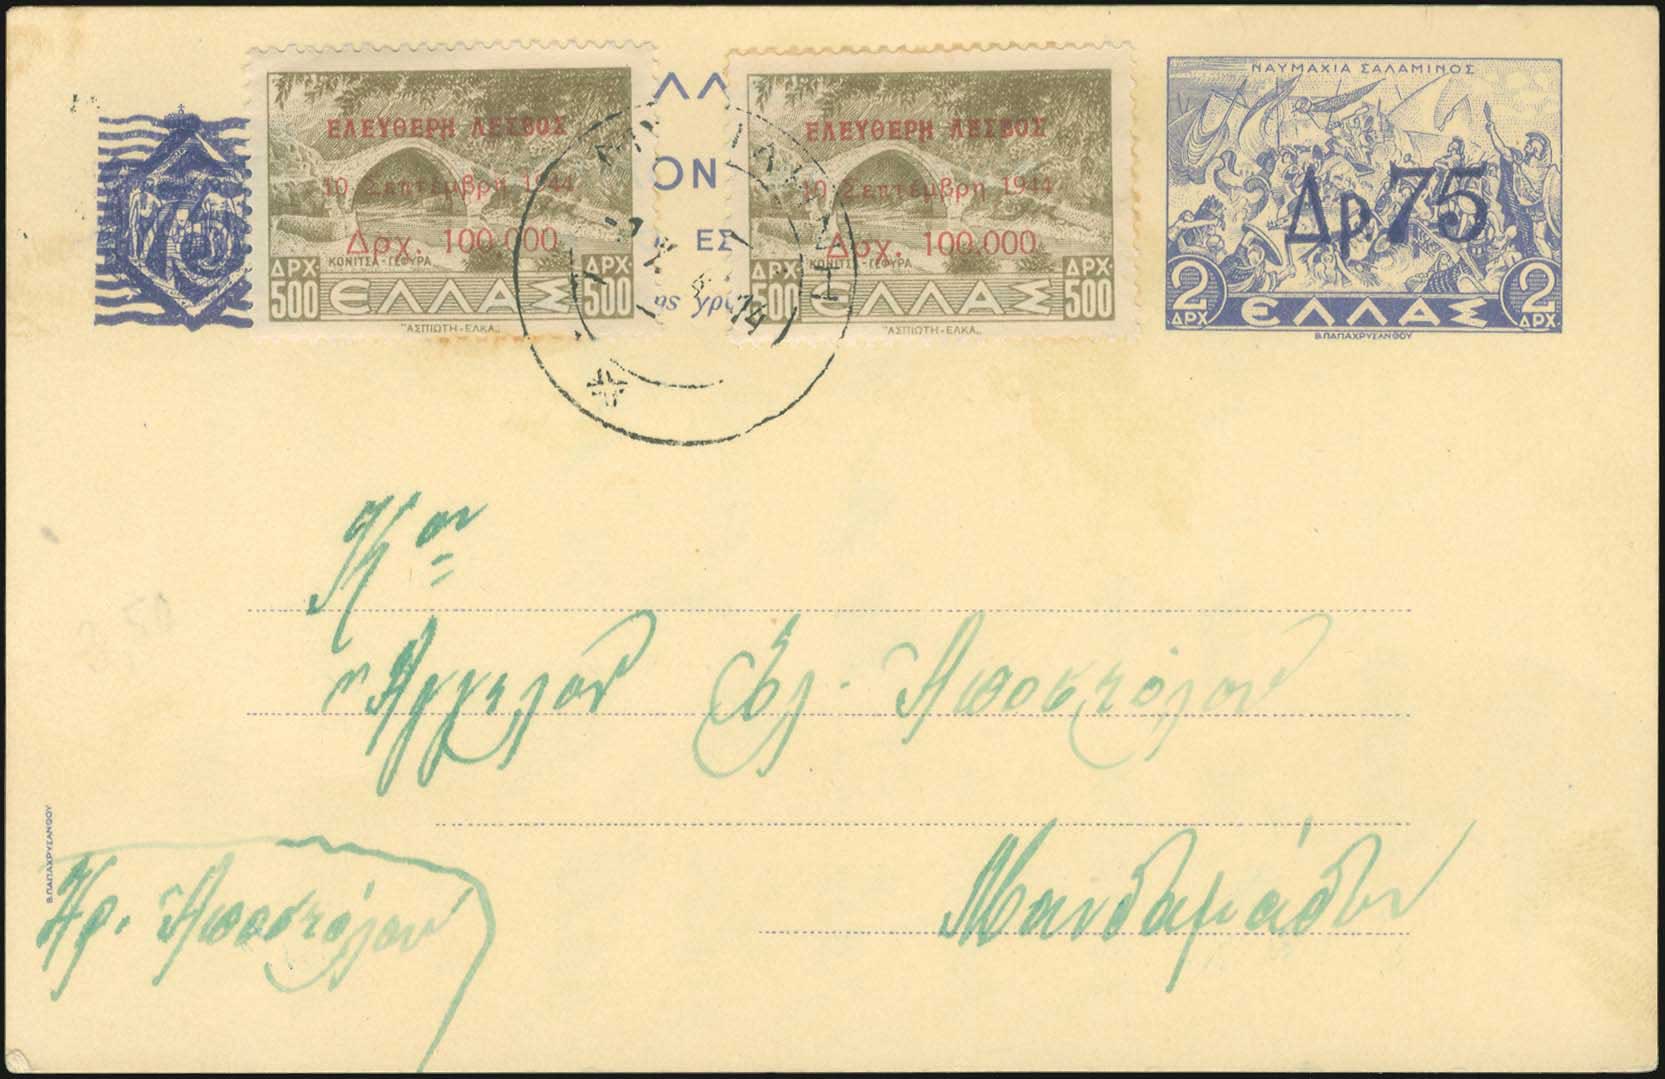 ΝΑΥΜΑΧΙΑ ΣΑΛΑΜΙΝΟΣ
Δρ. 75
2 ΔΡΧ. ΕΛΛΑΣ 2 ΔΡΧ.
Β.ΠΑΠΑΧΡΥΣΑΝΘΟΥ
75
ΕΛΕΥΘΕΡΗ ΛΕΣΒΟΣ
10 Σεπτέμβρη 1944
Δρχ. 100.000
ΚΟΝΙΤΣΑ-ΓΕΦΥΡΑ
ΔΡΧ. 500 ΕΛΛΑΣ ΔΡΧ. 500
"ΑΣΠΙΩΤΗ-ΕΛΚΑ"
ΛΛ
ΟΝ
ΕΣ
ης γρ
ΕΛΕΥΘΕΡΗ ΛΕΣΒΟΣ
10 Σεπτέμβρη 1944
Δρχ. 100.000
ΚΟΝΙΤΣΑ-ΓΕΦΥΡΑ
ΔΡΧ. 500 ΕΛΛΑΣ ΔΡΧ. 500
"ΑΣΠΙΩΤΗ-ΕΛΚΑ"
Κον
Ἄγγελον Ἐλ. Ἀποστόλου
Μανδαμάδον
Β.ΠΑΠΑΧΡΥΣΑΝΘΟΥ
Χρ. Ἀποστόλου